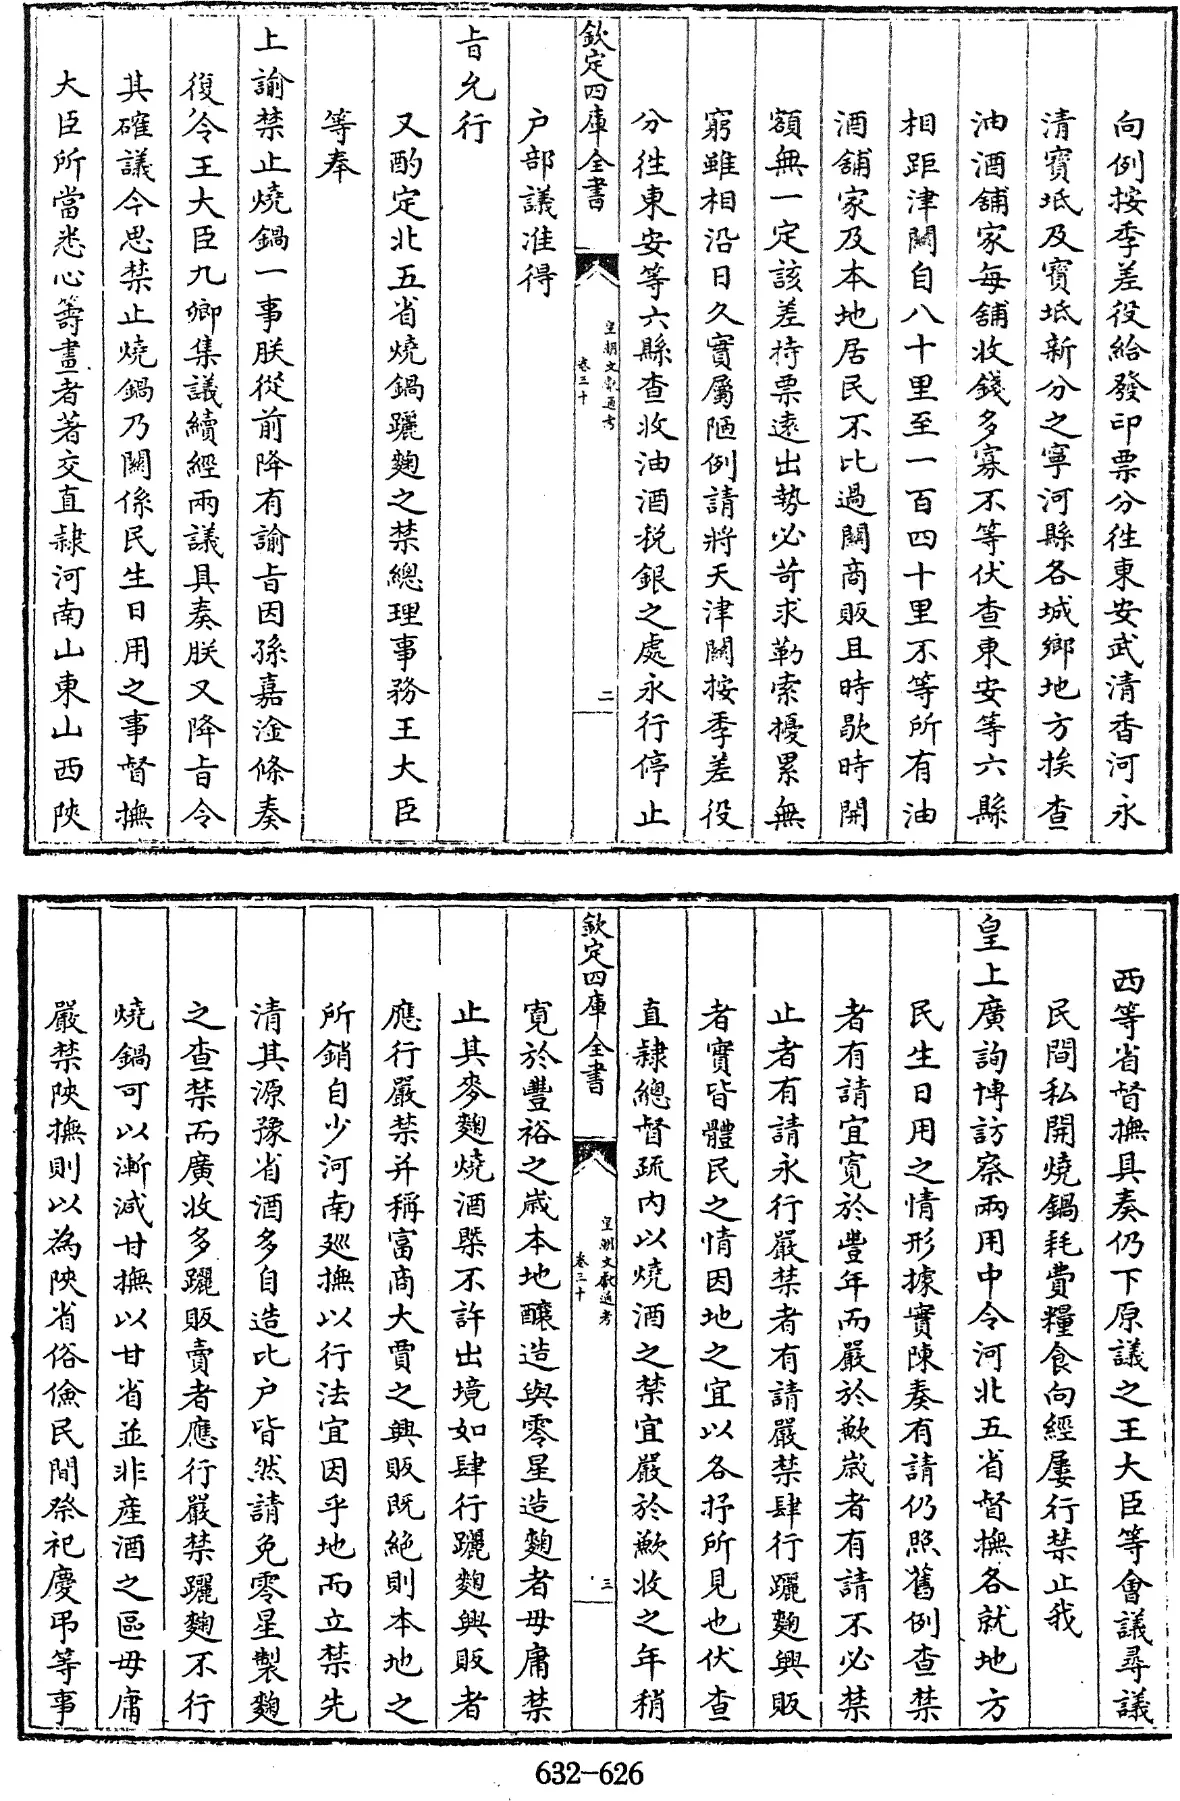 向例按季差役給發印票分往東安武清香河永
清寶坻及寶坻新分之寧河縣各城鄉地方挨查
油酒舖家每舖收錢多寡不等伏查東安等六縣
相距津關自八十里至一百四十里不等所有油
酒舖家及本地居民不比過關商販且時歇時開
額無一定該差持票遠出勢必苛求勒索擾累無
窮雖相沿日久實屬陋例請將天津關按季差役
分往東安等六縣查收油酒稅銀之處永行停止
欽定四庫全書
皇朝文獻通考
卷三十
二
户部議准得
旨允行
又酌定北五省燒鍋躧麴之禁總理事務王大臣
等奉
上諭禁止燒鍋一事朕從前降有諭旨因孫嘉淦條奏
復令王大臣九卿集議續經兩議具奏朕又降旨令
其確議今思禁止燒鍋乃關係民生日用之事督撫
大臣所當悉心籌畫者著交直隸河南山東山西陝
西等省督撫具奏仍下原議之王大臣等會議尋議
民間私開燒鍋耗費糧食向經屢行禁止我
皇上廣詢博訪察兩用中令河北五省督撫各就地方
民生日用之情形據實陳奏有請仍照舊例查禁
者有請宜寬於豐年而嚴於歉歲者有請不必禁
止者有請永行嚴禁者有請嚴禁肆行躧麴興販
者實皆體民之情因地之宜以各抒所見也伏查
直隸總督疏内以燒酒之禁宜嚴於歉收之年稍
欽定四庫全書
皇朝文獻通考
卷三十
三
寬於豐裕之歲本地釀造與零星造麴者毋庸禁
止其麥麴燒酒槩不許出境如肆行躧麴興販者
應行嚴禁并稱富商大賈之興販既絶則本地之
所銷自少河南廵撫以行法宜因乎地而立禁先
清其源豫省酒多自造比户皆然請免零星製麴
之查禁而廣收多躧販賣者應行嚴禁躧麴不行
燒鍋可以漸減甘撫以甘省並非產酒之區毋庸
嚴禁陝撫則以為陝省俗儉民間祭祀慶弔等事
632-626